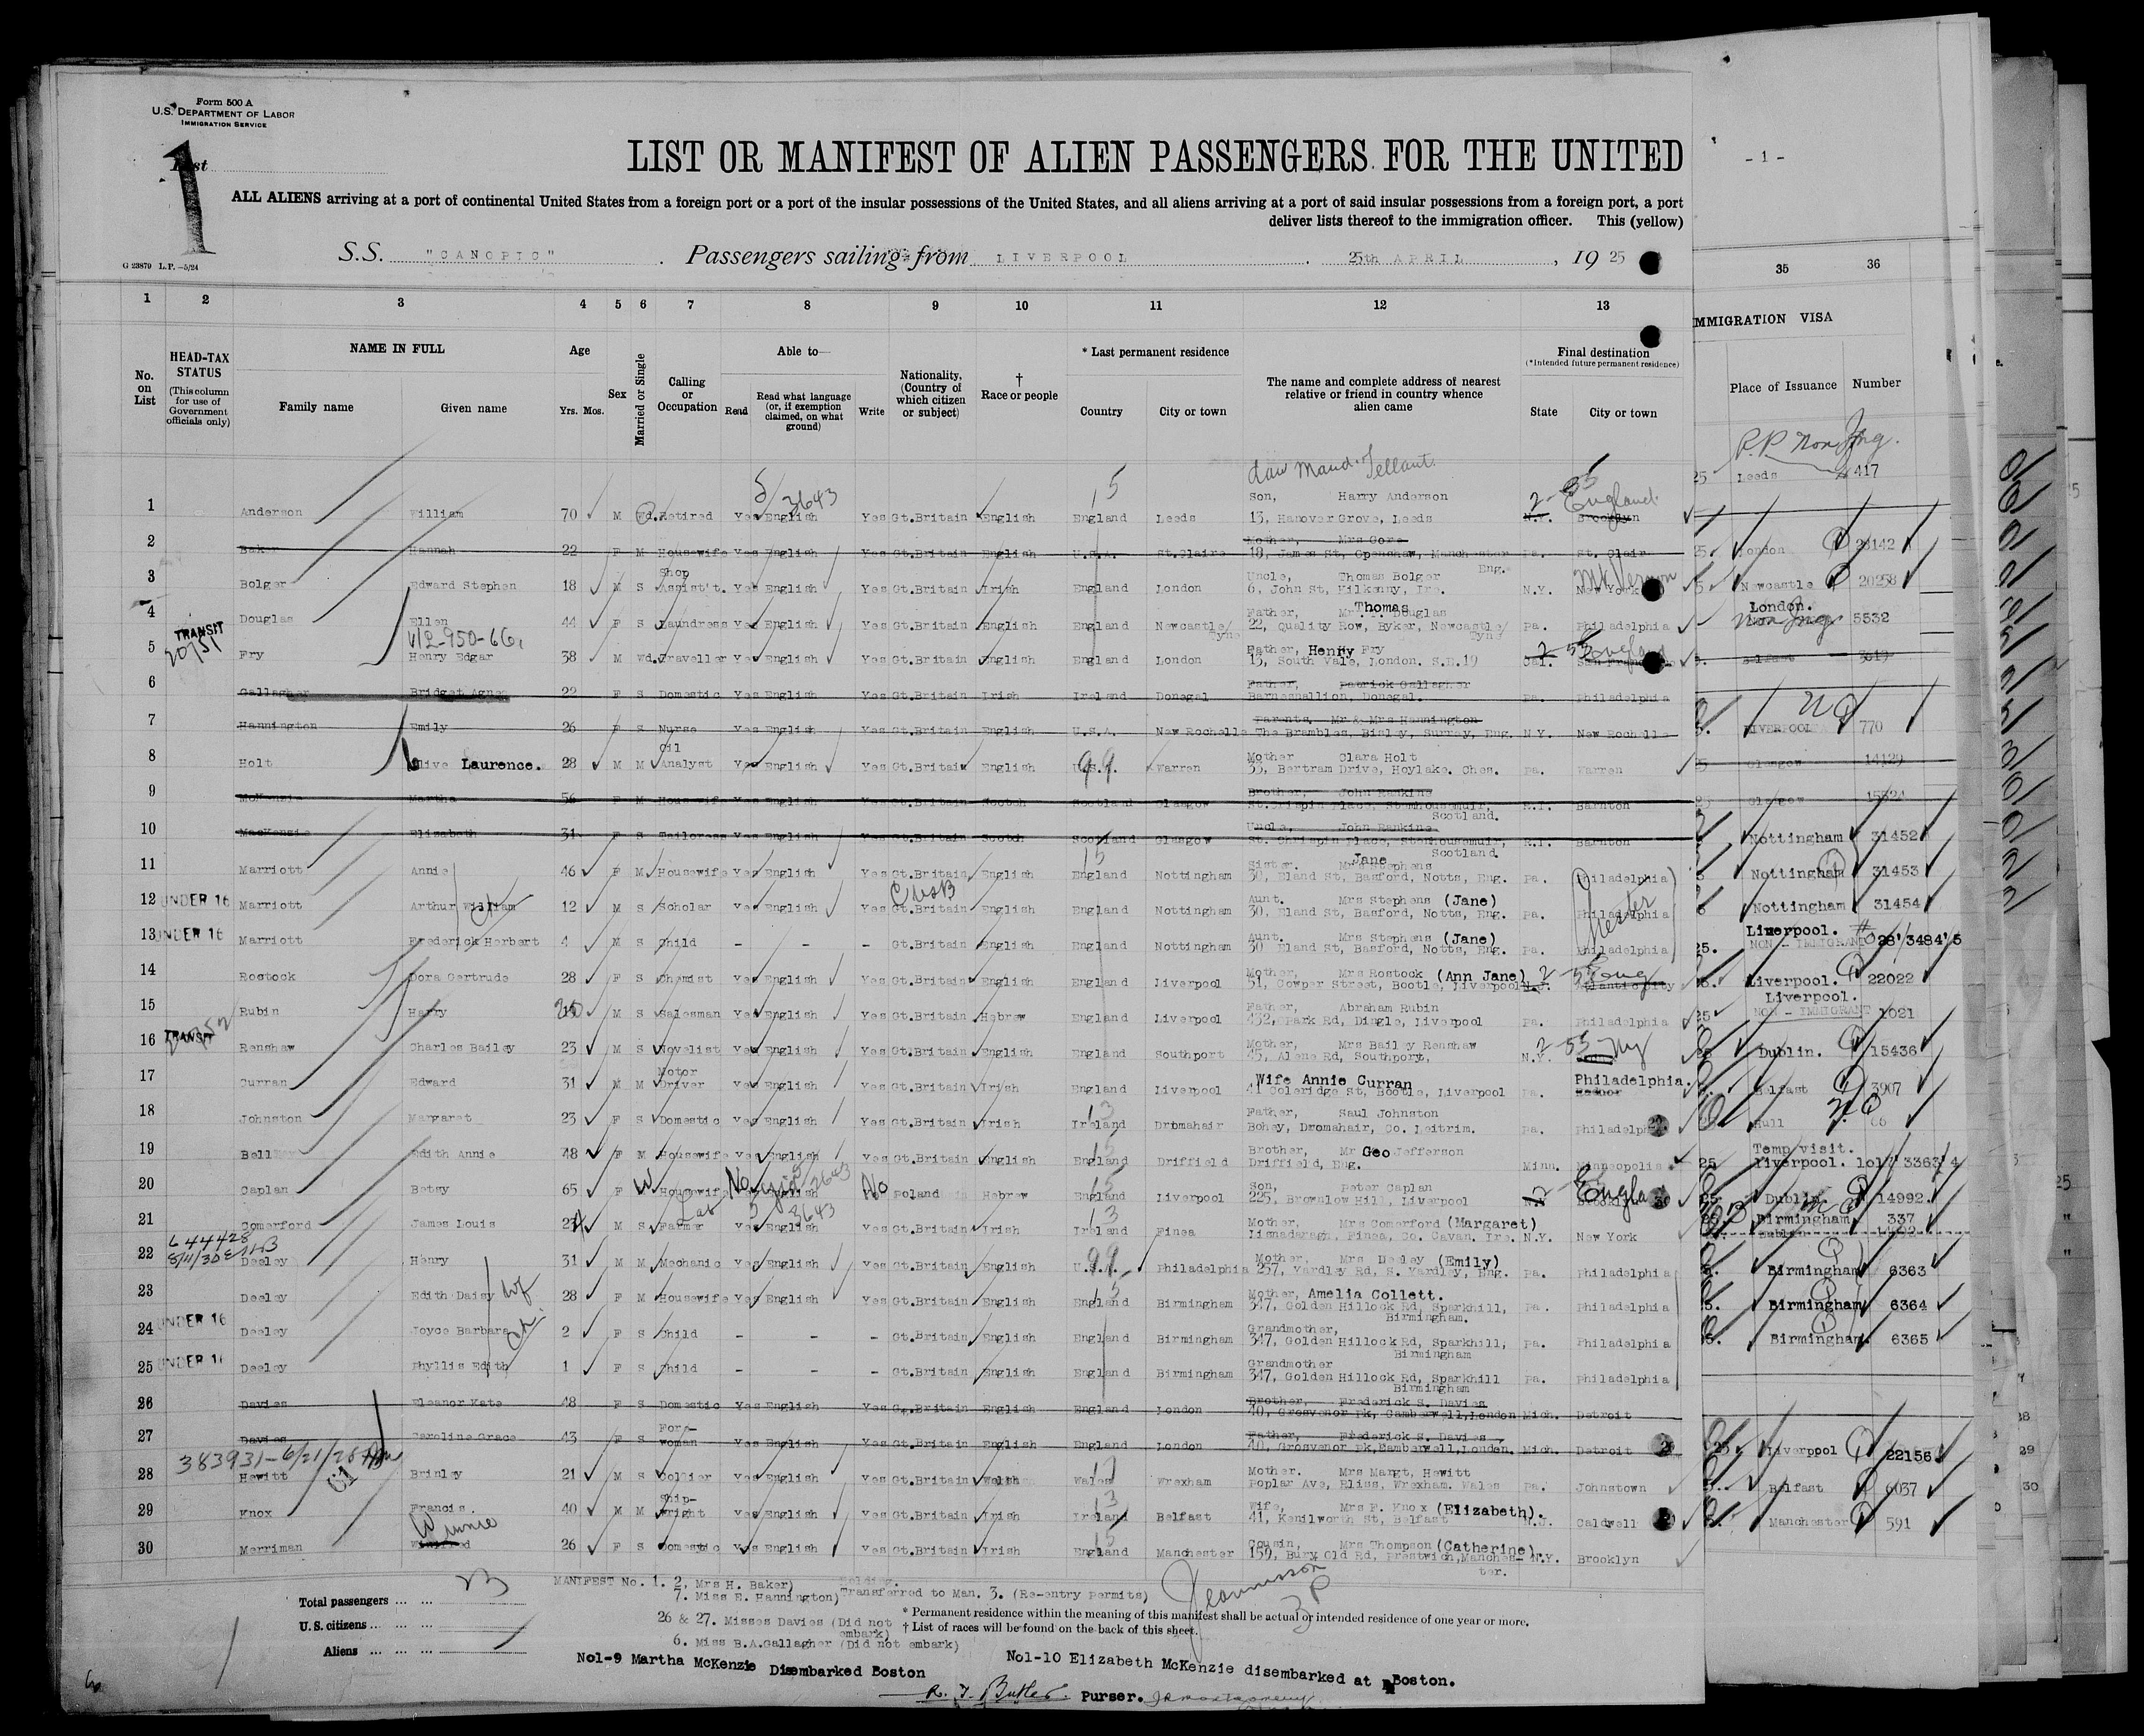 Form 500 A
U.S. DEPARTMENT OF LABOR
IMMIGRATION SERVICE
1
LIST OR MANIFEST OF ALIEN PASSENGERS FOR THE UNITED
- 1 -
ALL ALIENS arriving at a port of continental United States from a foreign port or a port of the insular possessions of the United States, and all aliens arriving at a port of said insular possessions from a foreign port, a port
deliver lists thereof to the immigration officer. This (yellow)
S.S. "CANOPIC" . Passengers sailing from LIVERPOOL . 25th APRIL , 19 25
G 23879 L.P.-5/24
1 2 3 4 5 6 7 8 9 10 11 12 13 35 36
No. on List
HEAD-TAX STATUS (This column for use of Government officials only)
NAME IN FULL Family name Given name
Age Yrs. Mos.
Sex
Married or Single
Calling or Occupation
Able to— Read Read what language (or, if exemption claimed, on what ground) Write
Nationality, (Country of which citizen or subject)
† Race or people
* Last permanent residence Country City or town
The name and complete address of nearest relative or friend in country whence alien came
Final destination (*Intended future permanent residence) State City or town
MMIGRATION VISA
Place of Issuance Number
25 Leeds 417
Son, Harry Anderson
1 Anderson William 70 M Wd. Retired Yes English Yes Gt.Britain English England Leeds 13, Hanover Grove, Leeds N.Y. Brooklyn England
Mother, Mrs Gore
2 Baker Hannah 22 F M Housewife Yes English Yes Gt.Britain English U.S.A. St.Claire 18, James St, Openshaw, Manchester Eng. Pa. St. Clair
London 28142
Uncle, Thomas Bolger
3 Bolger Edward Stephen 18 M S Shop Assist't. Yes English Yes Gt.Britain Irish England London 6, John St, Kilkenny, Ire. N.Y. New York Mt Vernon
Newcastle 20258
Father, Mr Thomas Douglas
4 Douglas Ellen 44 F S Laundress Yes English Yes Gt.Britain English England Newcastle/Tyne 22, Quality Row, Byker, Newcastle/Tyne Pa. Philadelphia
London. Non Img 5532
TRANSIT
V/2-950-66.
Father, Henry Fry
5 Fry Henry Edgar 38 M Wd. Traveller Yes English Yes Gt.Britain English England London 13, South Vale, London. S.E.19 Cal. San Francisco England
Belfast 3619
Father, Patrick Gallagher
6 Gallagher Bridget Agnes 22 F S Domestic Yes English Yes Gt.Britain Irish Ireland Donegal Barneshallion, Donegal. Pa. Philadelphia
Parents, Mr & Mrs Hannington
7 Hannington Emily 26 F S Nurse Yes English Yes Gt.Britain English U.S.A. New Rochelle The Brambles, Bisley, Surrey, Eng. N.Y. New Rochelle
LIVERPOOL 770
Mother Clara Holt
8 Holt Clive Laurence. 28 M M Oil Analyst Yes English Yes Gt.Britain English U.S.A. Warren 33, Bertram Drive, Hoylake. Ches. Pa. Warren
Glasgow 14129
Brother, John Rankine
9 McKenzie Martha 56 F M Housewife Yes English Yes Gt.Britain Scotch Scotland Glasgow St.Crispin Place, Stenhousemuir, Scotland. R.I. Barnton
Glasgow 15324
Uncle, John Rankine
10 MacKenzie Elizabeth 31 F S Tailoress Yes English Yes Gt.Britain Scotch Scotland Glasgow St. Chrispin Place, Stenhousemuir, Scotland. R.I. Barnton
Nottingham 31452
Sister. Mrs Jane Stephens
11 Marriott Annie 46 F M Housewife Yes English Yes Gt.Britain English England Nottingham 30, Eland St, Basford, Notts, Eng. Pa. Philadelphia
Nottingham 31453
Aunt. Mrs Stephens (Jane)
12 UNDER 16 Marriott Arthur William 12 M S Scholar Yes English Yes Gt.Britain English England Nottingham 30, Eland St, Basford, Notts, Eng. Pa. Philadelphia Chester
Nottingham 31454
Aunt. Mrs Stephens (Jane)
13 UNDER 16 Marriott Frederick Herbert 4 M S Child - - - Gt.Britain English England Nottingham 30 Eland St, Basford, Notts, Eng. Pa. Philadelphia
25. Liverpool. NON - IMMIGRANT 28'3484'5
Mother, Mrs Rostock (Ann Jane)
14 Rostock Dora Gertrude 28 F S Chemist Yes English Yes Gt.Britain English England Liverpool 51, Cowper Street, Bootle, Liverpool N.J. Atlantic City Eng
Liverpool. 22022
Father, Abraham Rubin
15 Rubin Harry 20 M S Salesman Yes English Yes Gt.Britain Hebrew England Liverpool 432, Park Rd, Dingle, Liverpool Pa. Philadelphia
25 Liverpool. NON - IMMIGRANT 1021
Mother, Mrs Bailey Renshaw
16 TRANSIT Renshaw Charles Bailey 23 M S Novelist Yes English Yes Gt.Britain English England Southport 45, Alene Rd, Southport, N.Y.
Dublin. 15436
Wife Annie Curran
17 Curran Edward 31 M M Motor Driver Yes English Yes Gt.Britain Irish England Liverpool 41 Coleridge St, Bootle, Liverpool Pa. Philadelphia.
Belfast 3907
Father, Saul Johnston
18 Johnston Margaret 23 F S Domestic Yes English Yes Gt.Britain Irish Ireland Dromahair Bohey, Dromahair, Co. Leitrim. Pa. Philadelphia
Hull 66
Brother, Mr Geo Jefferson
19 Bell Edith Annie 48 F M Housewife Yes English Yes Gt.Britain English England Driffield Driffield, Eng. Minn. Minneopolis
25 Temp visit. Liverpool. 1011' 3363'4
Son, Peter Caplan
20 Caplan Betsy 65 F W Housewife No English No Poland Hebrew England Liverpool 225, Brownlow Hill, Liverpool N.Y. Brooklyn
25. Dublin. 14992.
Mother, Mrs Comerford (Margaret)
21 Comerford James Louis 24 M S Farmer Yes English Yes Gt.Britain Irish Ireland Finea Lisnadaragh, Finea, Co. Cavan. Ire. N.Y. New York
Birmingham 337
644428
Mother, Mrs Deeley (Emily)
22 Deeley Henry 31 M M Mechanic Yes English Yes Gt.Britain English U.S.A. Philadelphia 257, Yardley Rd, S. Yardley, Eng. Pa. Philadelphia
Birmingham 6363
Mother, Amelia Collett.
23 Deeley Edith Daisy wf 28 F M Housewife Yes English Yes Gt.Britain English England Birmingham 347, Golden Hillock Rd, Sparkhill, Birmingham. Pa. Philadelphia
5. Birmingham 6364
Grandmother,
24 UNDER 16 Deeley Joyce Barbara ch. 2 F S Child - - - Gt.Britain English England Birmingham 347, Golden Hillock Rd, Sparkhill, Birmingham Pa. Philadelphia
Birmingham. 6365
Grandmother
25 UNDER 16 Deeley Phyllis Edith 1 F S Child - - - Gt.Britain English England Birmingham 347, Golden Hillock Rd, Sparkhill Birmingham Pa. Philadelphia
Brother, Frederick S. Davies
26 Davies Eleanor Kate 48 F S Domestic Yes English Yes Gt.Britain English England London 40, Grosvenor Pk, Camberwell, London Mich. Detroit
Father, Frederick S. Davies,
27 Davies Caroline Grace 43 F S Fore-woman Yes English Yes Gt.Britain English England London 40, Grosvenor Pk, Camberwell, London. Mich. Detroit
25. Liverpool 22156
383931-6/21/28
Mother. Mrs Margt, Hewitt
28 Hewitt Brinley 21 M S Collier Yes English Yes Gt.Britain Welsh Wales Wrexham Poplar Ave, Bliss, Wrexham. Wales Pa. Johnstown
Belfast 6037
Wife, Mrs F. Knox (Elizabeth).
29 Knox Francis. 40 M M Ship-wright Yes English Yes Gt.Britain Irish Ireland Belfast 41, Kenilworth St, Belfast N.J. Caldwell
Manchester 591
Winnie
Cousin, Mrs Thompson (Catherine).
30 Merriman Winifred 26 F S Domestic Yes English Yes Gt.Britain Irish England Manchester 159, Bury Old Rd, Prestwich, Manchester. N.Y. Brooklyn
Total passengers ... ... 23
U.S. citizens ... ... ...
Aliens ... ... ...
MANIFEST No. 1. 2, Mrs H. Baker)
7. Miss E. Hannington) Transferred to Man. 3. (Re-entry Permits)
26 & 27. Misses Davies (Did not embark)
6. Miss B.A.Gallagher (Did not embark)
* Permanent residence within the meaning of this manifest shall be actual or intended residence of one year or more.
† List of races will be found on the back of this sheet.
No1-9 Martha McKenzie Disembarked Boston
No1-10 Elizabeth McKenzie disembarked at Boston.
R. J. Butler. Purser.